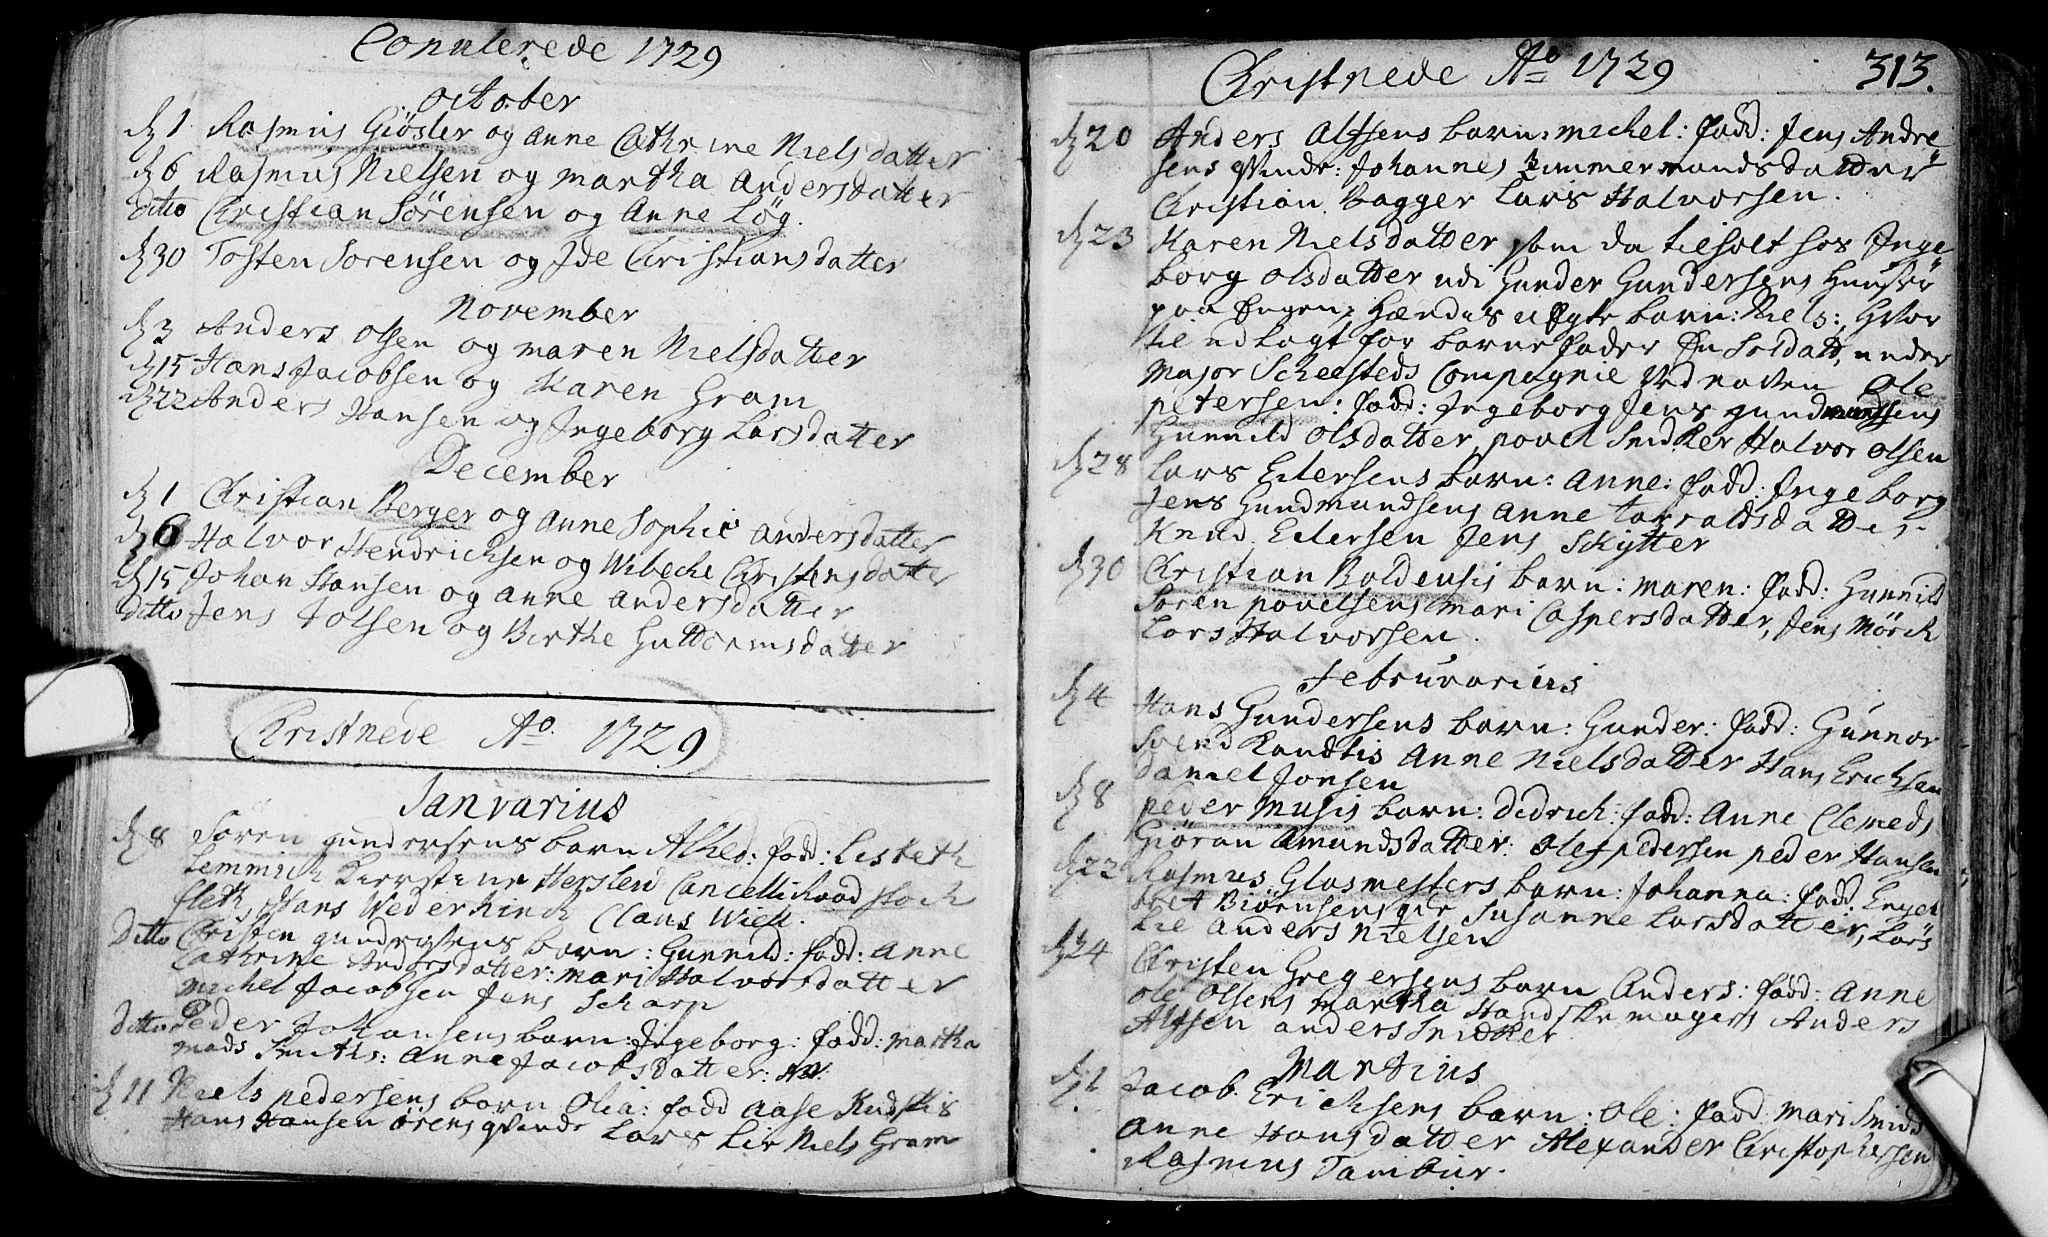 Copulerede 1729
October
d 1 Rasmus Giösler og Anne Cathrine Nielsdatter
d 6 Rasmus Nielsen og Martha Andersdatter
Ditto Christian Sörensen og Anne Løg.
d 30 Tosten Sorensen og Ide Christiansdatter
November
d 3 Anders Olsen og Maren Nielsdatter
d 15 Hans Jacobsen og Karen Gram
d 22 Anders Hansen og Ingeborg Larsdatter
December
d 1 Christian Berger og Anne Sophie Andersdatter
d 6 Halvor Hendrichsen og Wibeche Christensdatter
d 15 Johan Hansen og Anne Andersdatter
Ditto Jens Tolsen og Birthe Guttormsdatter
Christnede Ao. 1729
Ianvarius
d 8 Søren Gundersens barn Alhed: fadd: Lisbeth
Lemmich Kierstine Hersleb Cancelliraad Stock
fleth, Hans Wederkinch Claus Wiel.
Ditto Christen Gundersens barn: Gunnild: fadd: Anne
Cathrine Andersdatter: Mari Halvorsdatter
Michel Jacobsen Jens Scharp
Ditto Peder Johansens barn: Ingeborg: fadd: Martha
Mads Smiths: Anne Jacobsdatter:
d 11 Niels Pedersens barn Olia: fadd Aase
Hans Hansen Örens qvinde Lars Lie Niels Gram
Christnede Ao 1729 313.
d 20 Anders Alfsens barn: Michel: fadd: Jens Andre
sens qvinde: Johannes Zimmermandsdatter
Christian Bagger Lars Halvorsen.
d 23 Karen Nielsdatter som da tilholt hos Inge
borg Olsdatter udi Gunder Gundersens Huuser
paa Engen: Hendes uægte barn: Niels: Hvor
til udlagt for barnefader En Soldat, under
Major Scheelsteds Compagnie ved navn Ole
Petersen: fadd: Ingeborg Jens Gundmundsens
Gunnild Olsdatter, Povel Snidker Halvor Olsen
d 28 Lars Eilersens barn: Anne: fadd: Ingeborg
Jens Gundmundsens Anne Tarraldsdatter
Knud Eilersen Jens Skytter
d 30 Christian Boldensis barn: Maren: fadd: Gunnild
Sören Povelsens Mari Caspersdatter, Jens Mörch
Lars Halvorsen.
Februvarius
d 4 Hans Gundersens barn: Gunder: fadd: Gunnor
Svend Randtis Anne Nielsdatter Hans Erichsen
Daniel Jonsen
d 8 Peder Musis barn: Didrich: fadd: Anne Clemeds
Giöran Amundsdatter: Olef Pedersen Peder Hansen
d 22 Rasmus Glasmesters barn: Johanna: fadd: Engel
bret Biörnsens qv: Susanne Larsdatter, Lars
Lie Anders Nielsen
d 24 Christen Gregersens barn Anders: fadd: Anne
Ole Olsens Martha Handskemagers Anders
Alfsen Anders Snidker
Martius
d 1 Jacob Erichsens barn: Ole: fadd: Mari Smids
Anne Hansdatter Alexander Christophersen
Rasmus Tambur.